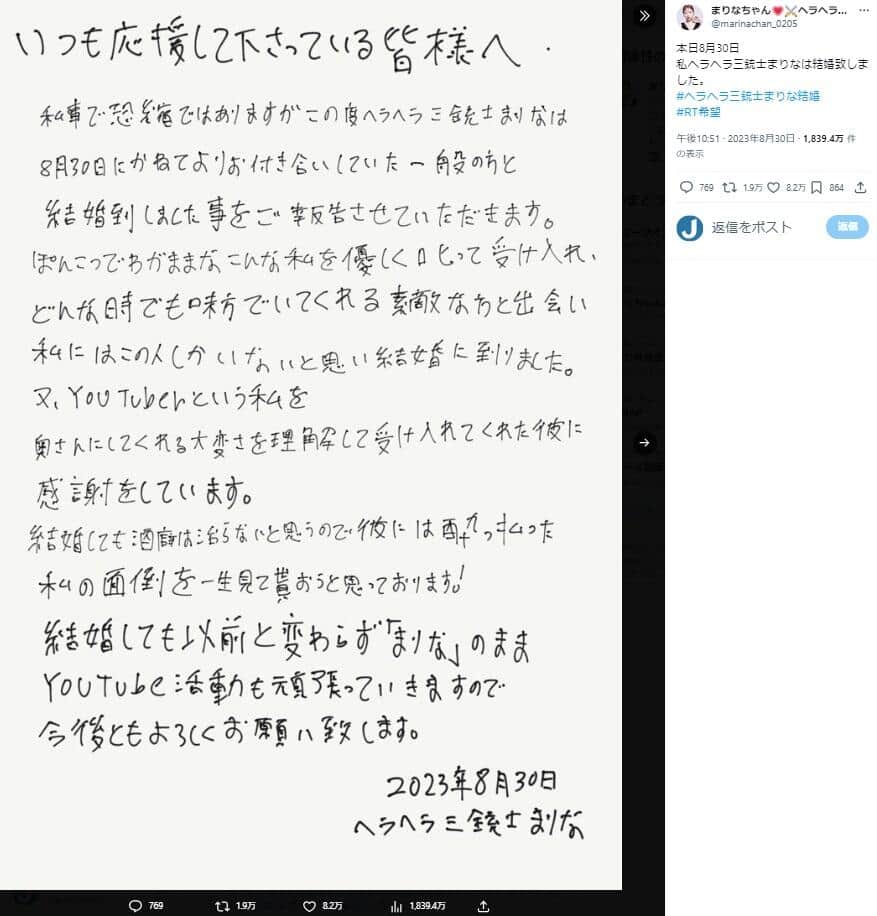 いつも応援して下さっている皆様へ.
私事で恐縮ではありますがこの度ヘラヘラ三銃士まりなは
8月30日にかねてよりお付き合いしていた一般の方と
結婚到しました事をご報告させていただきます。
ぽんこつでわがままなこんな私を優しく叱って受け入れ、
どんな時でも味方でいてくれる素敵な方と出会い
私にはこの人しかいないと思い結婚に到りました。
又、YOUTuberという私を
奥さんにしてくれる大変さを理解して受け入れてくれた彼に
感謝をしています。
結婚しても酒癖は治らないと思うので彼には酔っ払った
私の面倒を一生見て貰おうと思っております!
結婚しても以前と変わらず「まりな」のまま
YOUTUbe活動も頑張っていきますので
今後ともよろしくお願い致します。
2023年8月30日
ヘラヘラ三銃士まりな
769 1.9万 8.2万 1,839.4万
まりなちゃん💗⚔️ヘラヘラ... …
@marinachan_0205
本日8月30日
私ヘラヘラ三銃士まりなは結婚致しま
した。
#ヘラヘラ三銃士まりな結婚
#RT希望
午後10:51 · 2023年8月30日 · 1,839.4万 件
の表示
769 1.9万 8.2万 864
J 返信をポスト 返信